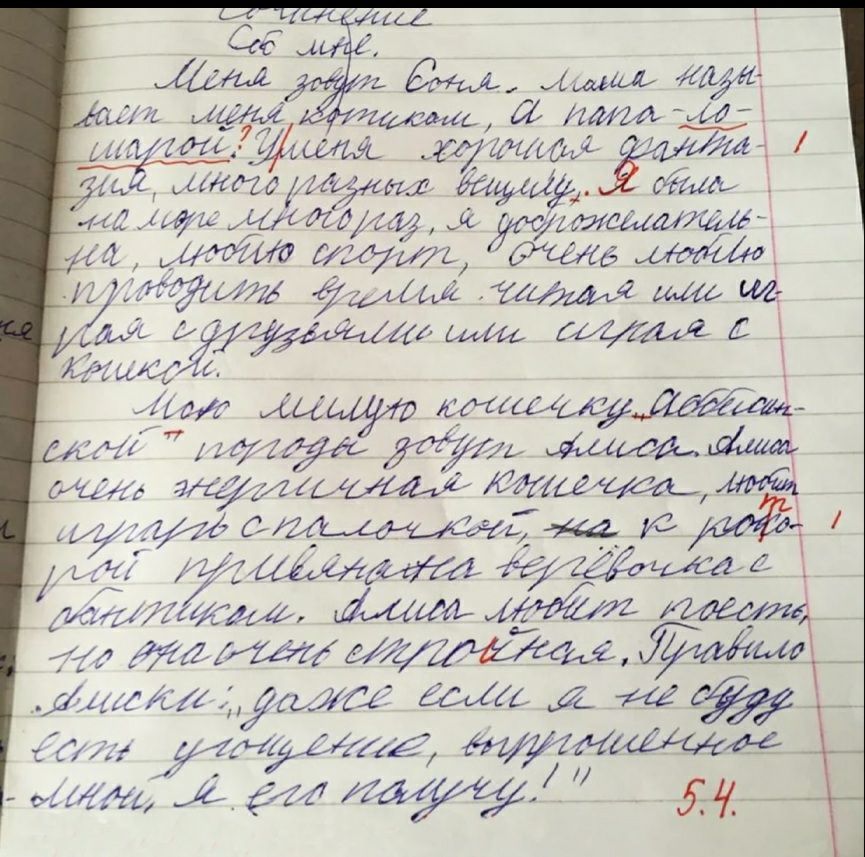 Сочинение
Обо мне.
Меня зовут Соня. Мама назы-
вает меня котиком, а папа - ло-
шарой? У меня хорошая фанта-
зия, много разных вещичу,. Я была
на море много раз, я доброжелатель-
на, люблю спорт, очень люблю
проводить время читая или иг-
рая с друзьями или играя с
кошкой.
Мою милую кошечку „Аббисин-
ской" породы зовут Алиса. Алиса
очень энергичная кошечка, любит
играть с палочкой, на к кото-
рой привязана верёвочка с
бантиком. Алиса любит поесть,
но она очень стройная. Правило
Алиски: „даже если я не буду
есть угощение, выпрошенное
мной, я его получу!"
5.4.